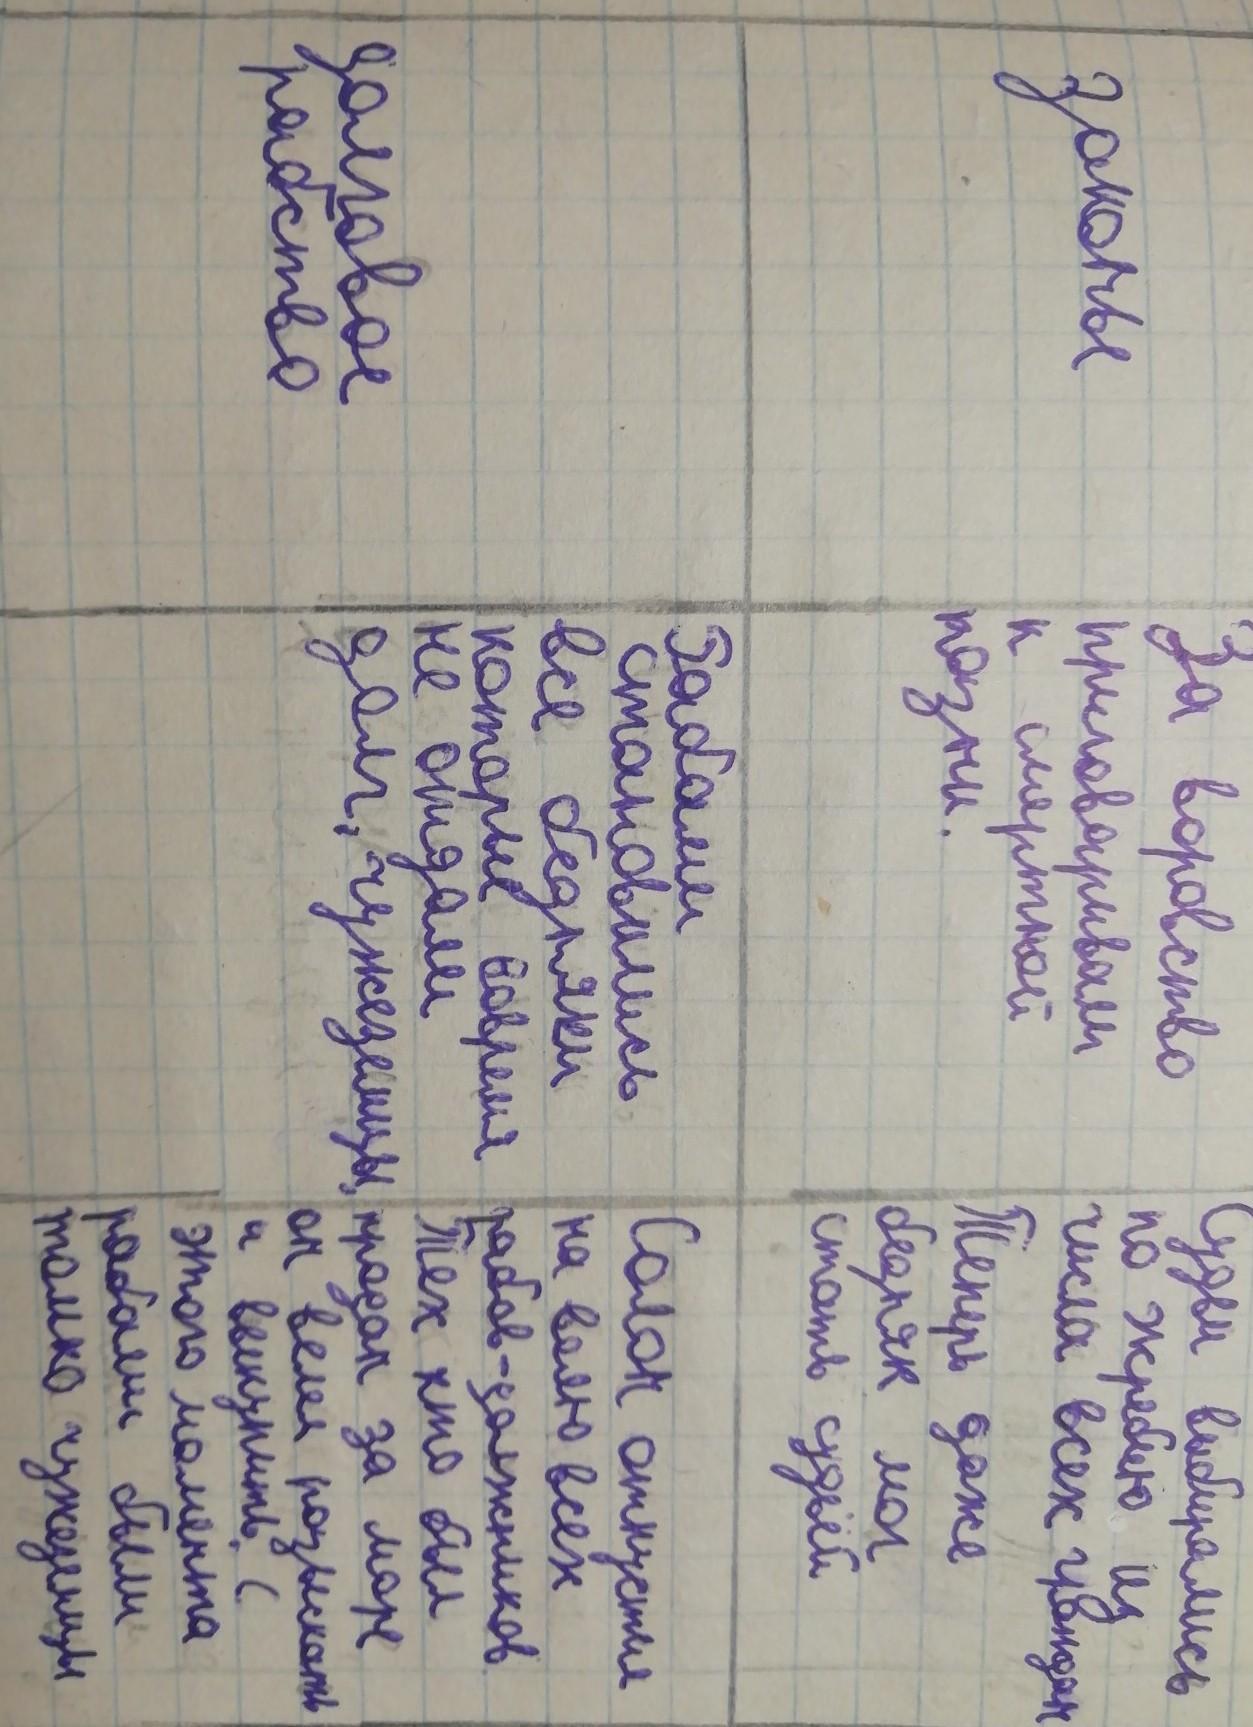 Законы
За воровство
приговаривали
к смертной
казни.
Судьи выбирались
по жребию из
числа всех граждан
Теперь даже
бедняк мог
стать судьёй
долговое
рабство
Рабами
становились
все бедняки
которые вовремя
не отдали
долг, чужеземцы,
Солон отпустил
на волю всех
рабов-должников
Тех кто был
продан за море
он велел разыскать
и выкупить. С
этого момента
рабами были
только чужеземцы